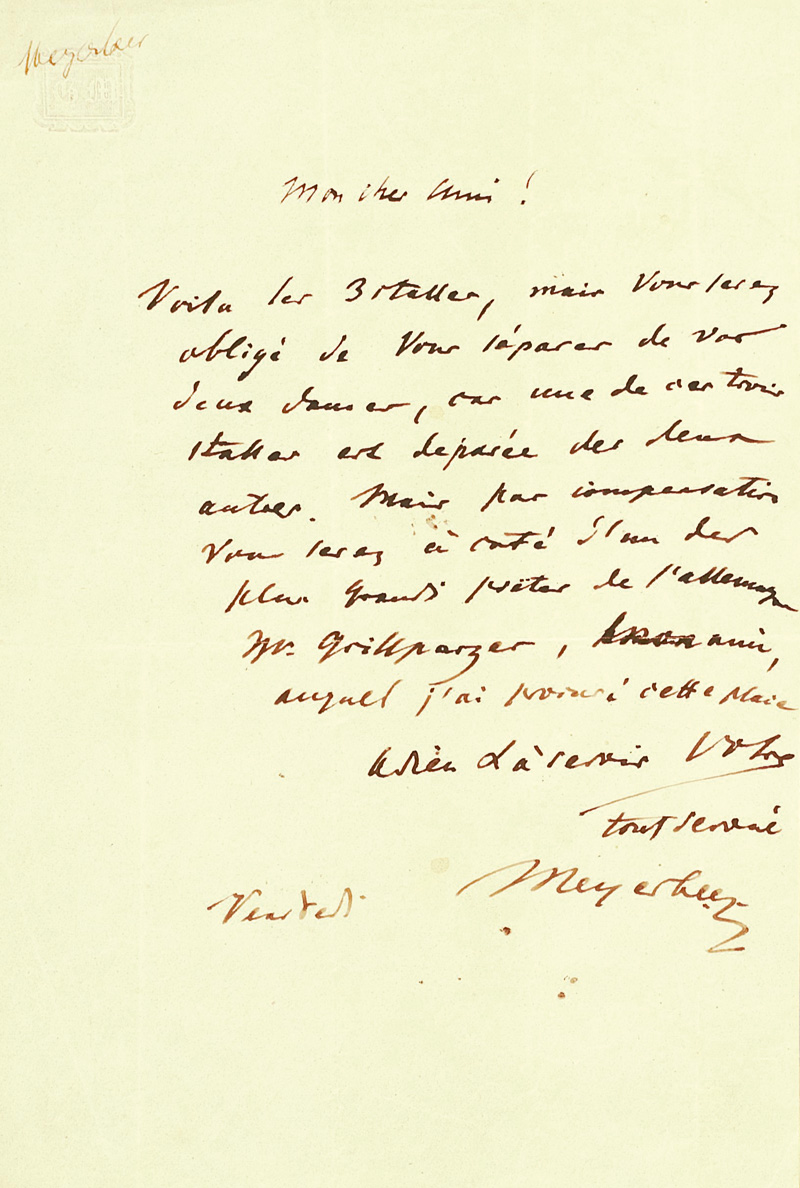 Meyerbeer
Mon cher Ami !
Voila les 3 stalles, mais Vous serez
obligé de Vous séparer de vos
deux dames, car une de ces trois
stalles est separée des deux
autres. Mais par compensation
Vous serez à coté d'un des
plus grands poètes de l'allemagne
Mr. Grillparzer, ami,
auquel j'ai procuré cette place
Adieu à ce soir Votre
tout devoué
Meyerbeer
Vendredi